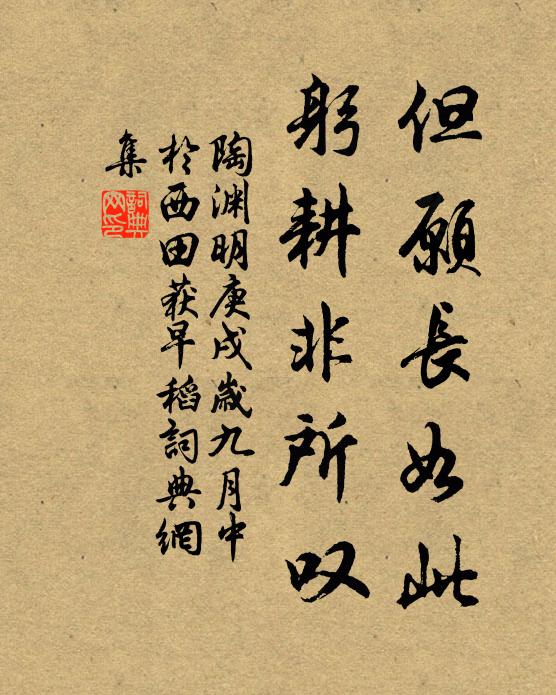 但願長如此
躬耕非所叹
陶渊明庚戌歲九月中
於西田获早稻詞典網
集
詞典
网印